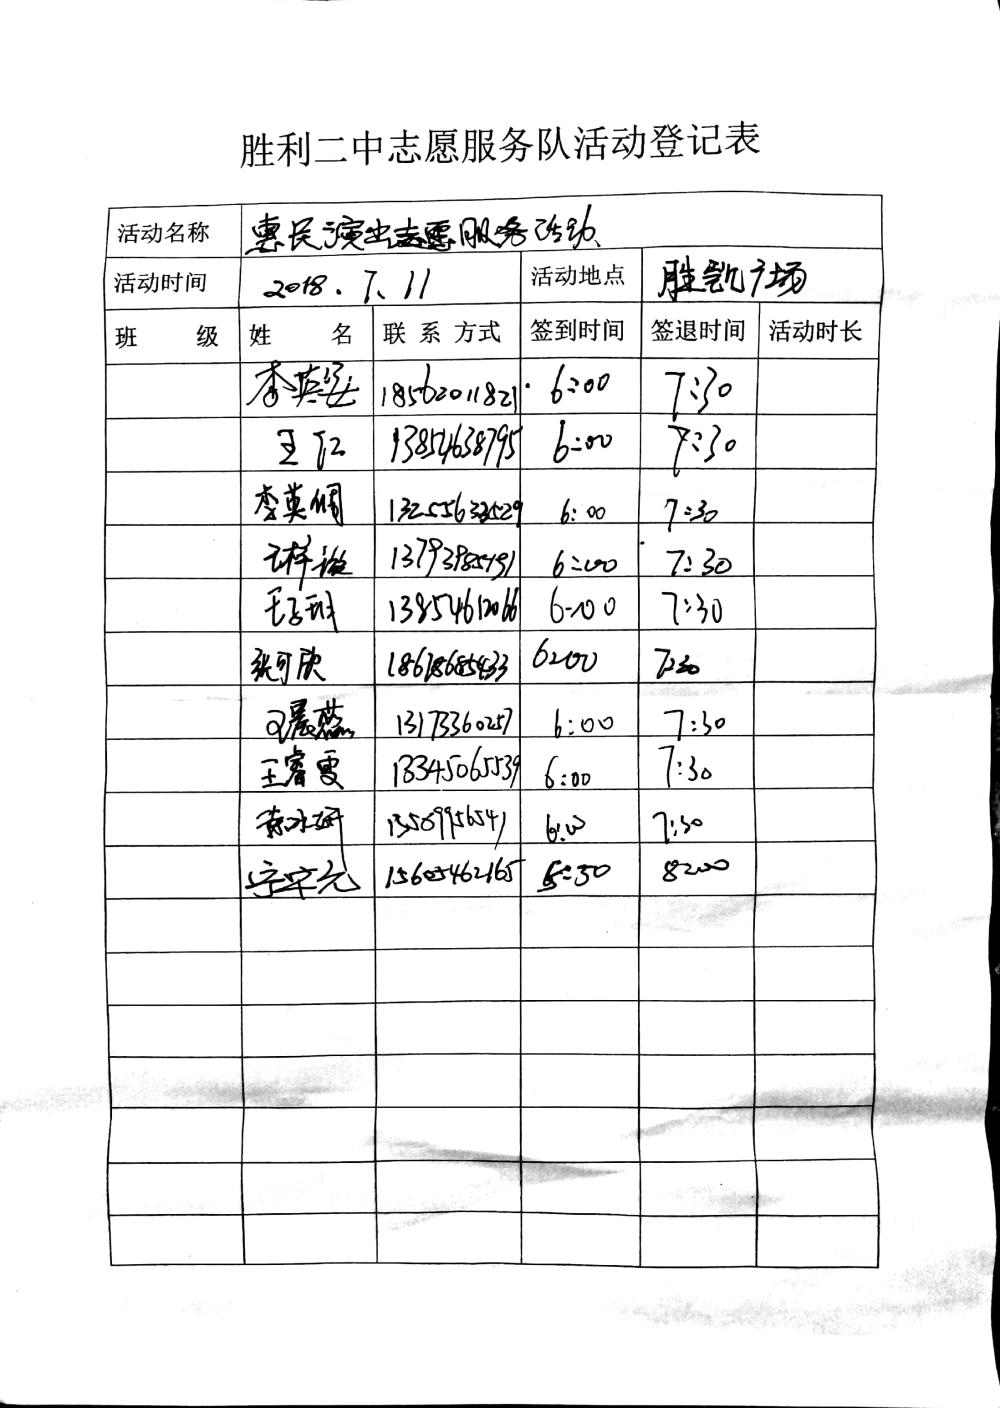 胜利二中志愿服务队活动登记表
活动名称 惠民演出志愿服务活动
活动时间 2018.7.11 活动地点 胜凯广场
班 级 姓 名 联系方式 签到时间 签退时间 活动时长
18562011821 6:00 7:30
王仁 13854638795 6:00 7:30
李英倜 13255633529 6:00 7:30
王梓漩 13793985191 6:00 7:30
13854612066 6:00 7:30
张可欣 18678685433 6:00 7:30
王晨蕊 13173360257 6:00 7:30
王睿雯 13345065539 6:00 7:30
13509956541 6:00 7:30
15605462165 5:30 8:00